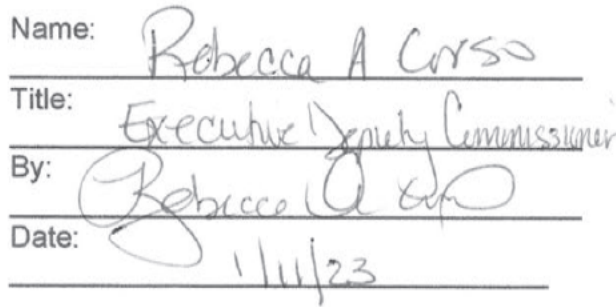 Name: Rebecca A Corso
Title: Executive Deputy Commissioner
By: Rebecca A Corso
Date: 1/11/23